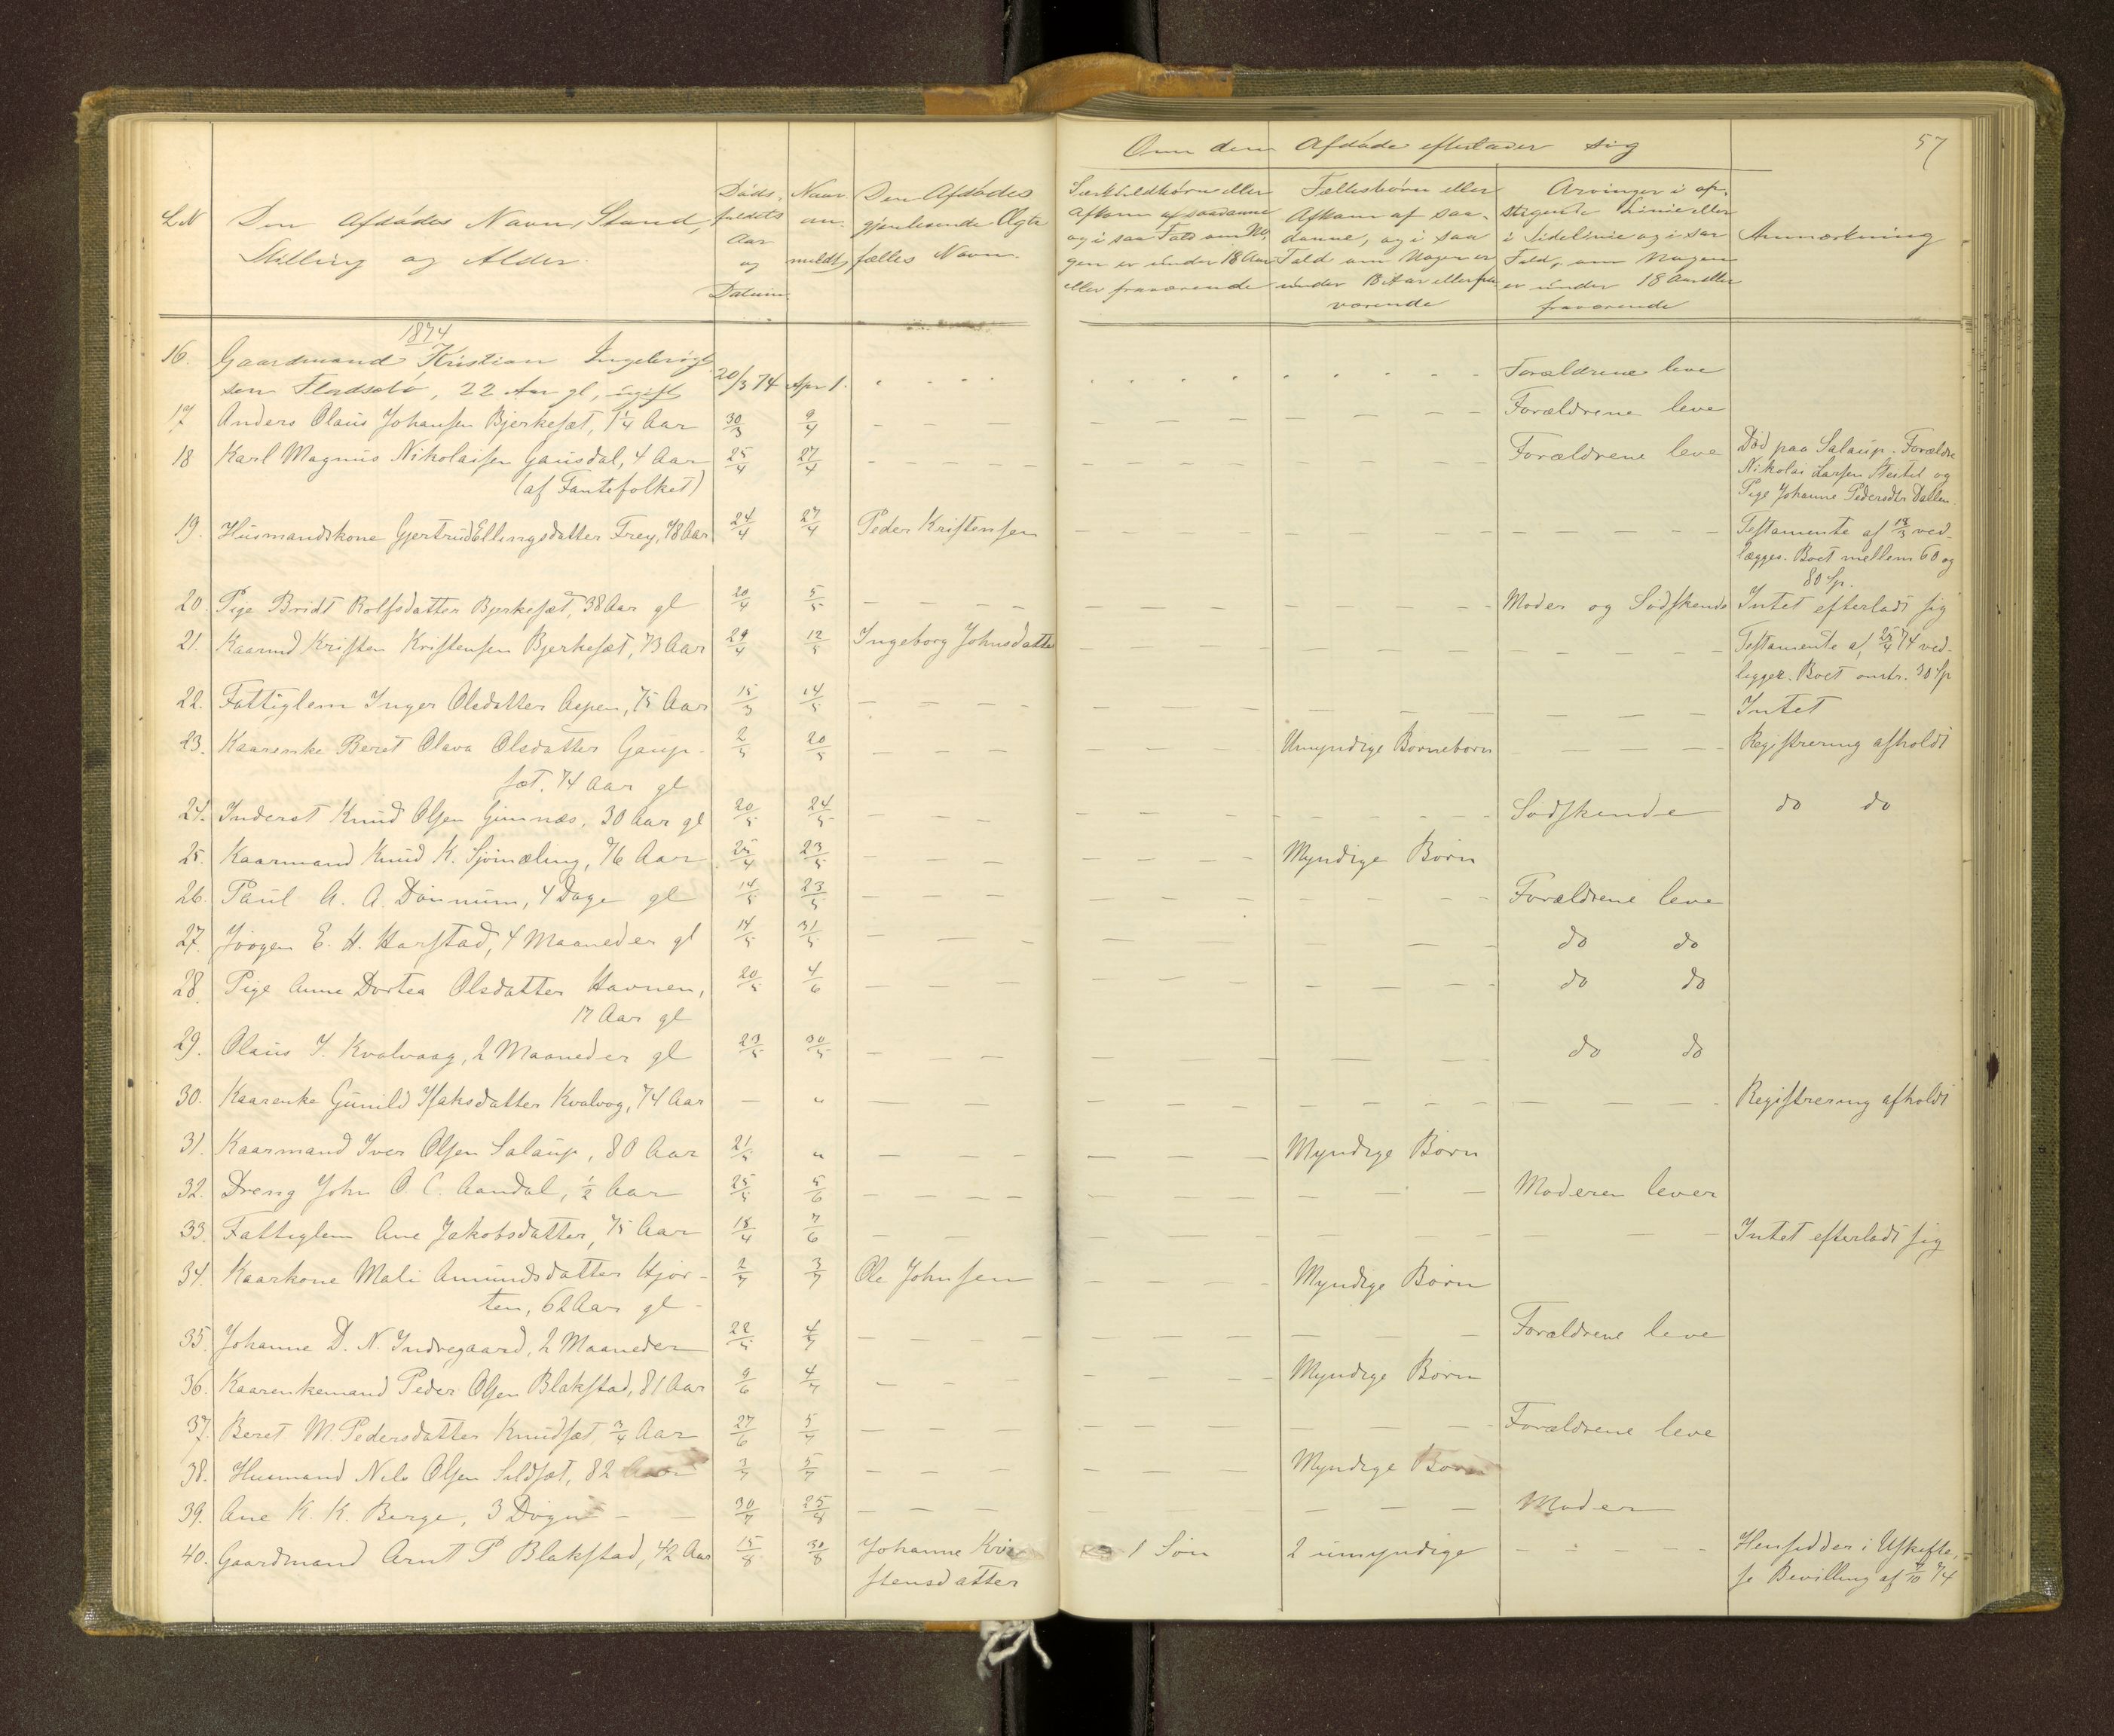 57
Om den Afdøde efterlader sig
L.N
Den Afdødes Navn, Stand,
Stilling og Alder.
Døds-
faldets
Aar
og
Datum
Naar
an-
meldt
Den Afdødes
gjenlevende Ægte
fælles Navn.
Særkuldbørn eller
Afkom af saadanne
og i saa Fald om No-
gen er under 18 Aar
eller fraværende
Fællesbørn eller
Afkom af saa-
danne, og i saa
Fald om Nogen er
under 18 Aar eller fra
værende
Arvinger i op-
stigende Linie eller
i Sidelinie og i saa
Fald, om Nogen
er under 18 Aar eller
fraværende
Anmærkning
1874
16. Gaardmand Kristian Ingebrigt
sen Fladsætø, 22 Aar gl, ugift 20/3 74 Apr 1. Forældrene leve
17 Anders Olaus Johansen Bjerkesæt, 1 1/4 Aar 30/3 9/4 — — — Forældrene leve
18 Karl Magnus Nikolaisen Gausdal, 4 Aar 25/4 27/4 — — — Forældrene leve Død paa Salaup. Forældre
(af Fantefolket) Nikolai Larsen og
Pige Johanne Pedersdtr Dallen
19. Husmandskone Gjertrud Ellingsdatter Frey, 78 Aar 24/4 27/4 Peder Kristensen — — — Testamente af 18/3 ved-
lægges. Boet mellem 60 og
80 Sp.
20. Pige Bridt Rolfsdatter Bjerkesæt, 38 Aar gl 20/4 5/5 — — — Moder og Sødskende Intet efterladt sig
21. Kaarmd Kristen Kristensen Bjerkesæt, 73 Aar 29/4 12/5 Ingeborg Johnsdatter — — — Testamente af 25/4 74 ved-
ligger. Boet omtr. 30 Sp
22. Fattiglem Inger Olsdatter Aspen, 75 Aar 15/3 14/5 — — — Intet
23. Kaarenke Beret Olava Olsdatter Gaup- 2/5 20/5 — — — Umyndige Børnebørn — — — Registrering afholdt
sæt. 74 Aar gl
24. Inderst Knud Olsen Gimnæs, 30 Aar gl 20/5 24/5 — — — Sødskende do do
25. Kaarmand Knud K. Sjømæling, 76 Aar 25/4 23/5 — — — Myndige Børn
26. Paul A. A. Dønnum, 4 Dage gl 14/5 23/5 — — — Forældrene leve
27. Jørgen E. H. Harstad, 4 Maaneder gl 14/5 31/5 — — — do do
28. Pige Anne Dortea Olsdatter Havnen, 20/5 4/6 — — — do do
17 Aar gl
29. Olaus I. Kvalvaag, 2 Maaneder gl 23/5 30/5 — — — do do
30. Kaarenke Gunild Isaksdatter Kvalvog, 74 Aar — " — — — Registrering afholdt
31. Kaarmand Iver Olsen Salaup, 80 Aar 21/5 " — — — Myndige Børn
32. Dreng John O. C. Aandal, 1/2 Aar 25/5 5/6 — — — Moderen lever
33. Fattiglem Ane Jakobsdatter, 75 Aar 18/4 7/6 — — — Intet efterladt sig
34. Kaarkone Mali Amundsdatter Hjor- 2/7 3/7 Ole Johnsen — — — Myndige Børn
ten, 62 Aar gl -
35. Johanne D. N. Indregaard, 2 Maaneder 22/5 4/7 — — — Forældrene leve
36. Kaarenkemand Peder Olsen Blakstad, 81 Aar 9/6 4/7 — — — Myndige Børn
37. Beret M. Pedersdatter Knudsæt, 3/4 Aar 27/6 5/7 — — — Forældrene leve
38. Husmand Nils Olsen Sildsæt, 82 Aar 3/7 5/7 — — — Myndige Børn
39. Ane K. K. Berge, 3 Døgn — — 30/7 25/8 — — — Moder
40. Gaardmand Arnt P Blakstad, 42 Aar 15/8 30/8 Johanne Kri 1 Søn 2 umyndige — — — Hensidder i Uskifte,
stensdatter se Bevilling af 7/10 74